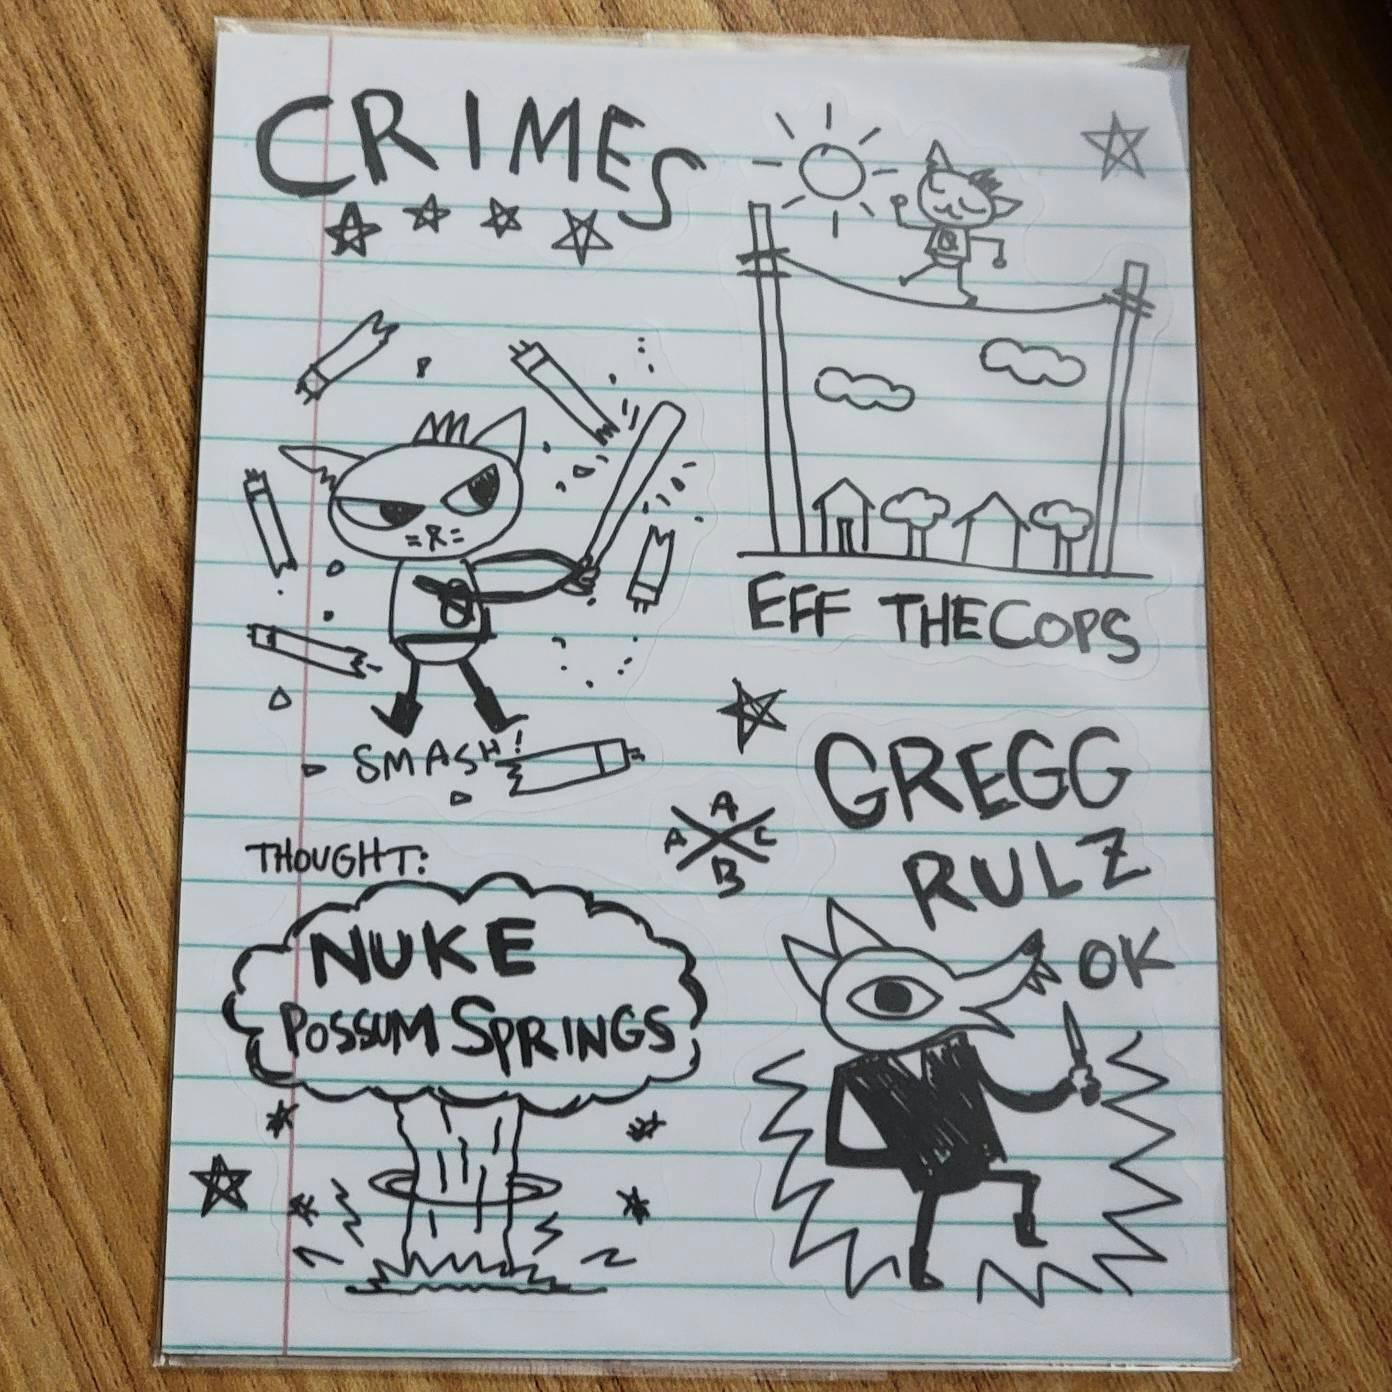 CRIMES
EFF THE COPS
SMASH!
GREGG
RULZ
OK
A
A C
B
THOUGHT:
NUKE
POSSUM SPRINGS